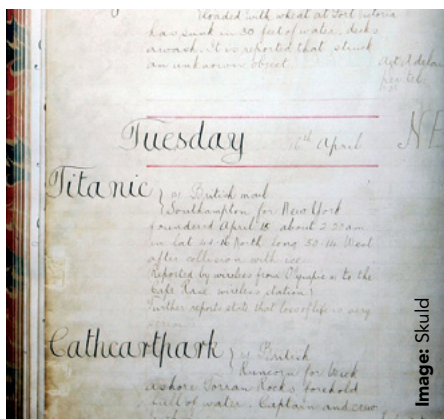 loaded with wheat at Port Victoria
has sunk in 30 feet of water, decks
awash. It is reported that struck
an unknown object
per tel.
Tuesday 16th April
Titanic } British mail
Southampton for New York
foundered April 15 about 2.20 am
in lat 41.16 North long 50.14 West
after collision with ice
Reported by wireless from Olympic to the
Cape Race wireless station
Further reports state that loss of life is very
Cathcartpark } British
Runcorn for Wick
ashore Torran Rocks forehold
full of water. Captain and crew
Image: Skuld